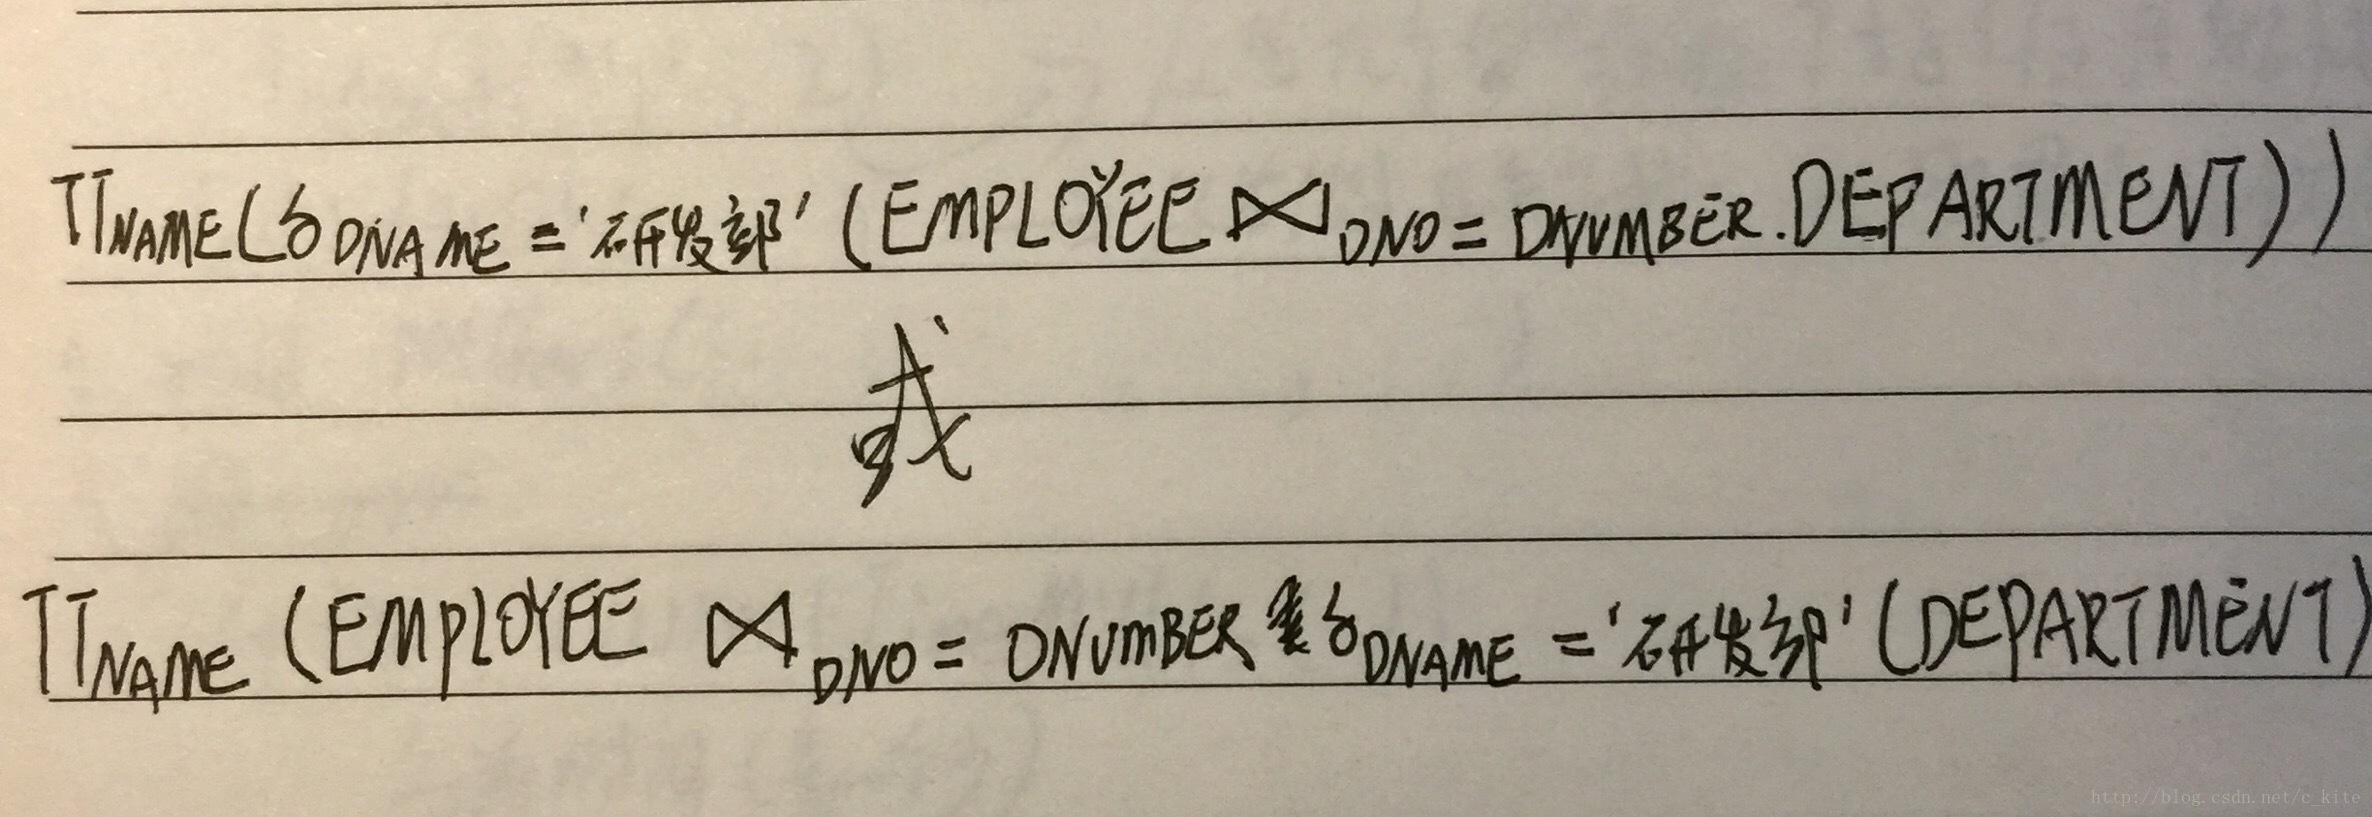 πNAME(σDNAME='研发部'(EMPLOYEE⋈DNO=DNUMBER.DEPARTMENT))
或
πNAME(EMPLOYEE ⋈DNO=DNUMBER σDNAME='研发部'(DEPARTMENT)
http://blog.csdn.net/c_kite